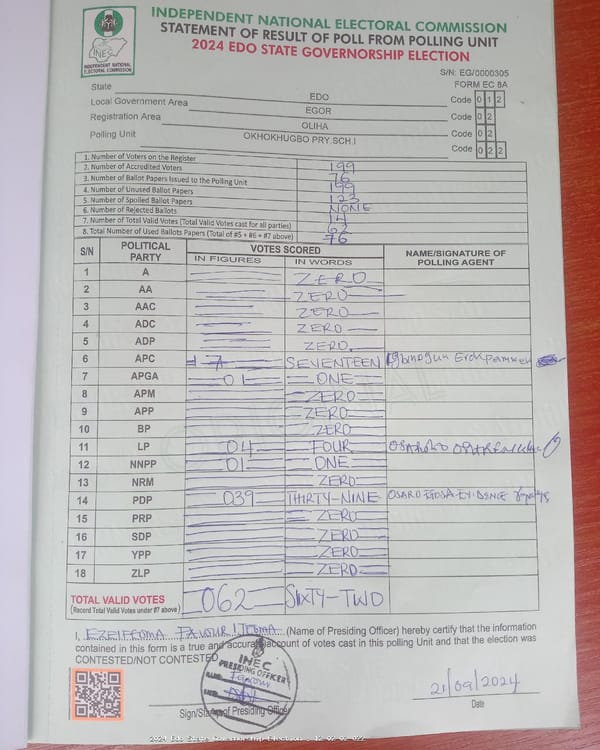 INDEPENDENT NATIONAL ELECTORAL COMMISSION
STATEMENT OF RESULT OF POLL FROM POLLING UNIT
2024 EDO STATE GOVERNORSHIP ELECTION
INEC
INDEPENDENT NATIONAL ELECTORAL COMMISSION
S/N: EG/0000305
FORM EC 8A
State EDO Code 0 1 2
Local Government Area EGOR Code 0 2
Registration Area OLIHA Code 0 2
Polling Unit OKHOKHUGBO PRY.SCH.I Code 0 2 2
1. Number of Voters on the Register 199
2. Number of Accredited Voters 76
3. Number of Ballot Papers Issued to the Polling Unit 199
4. Number of Unused Ballot Papers 123
5. Number of Spoiled Ballot Papers NONE
6. Number of Rejected Ballots 14
7. Number of Total Valid Votes (Total Valid Votes cast for all parties) 62
8. Total Number of Used Ballots Papers (Total of #5 + #6 + #7 above) 76
S/N POLITICAL PARTY VOTES SCORED NAME/SIGNATURE OF POLLING AGENT
IN FIGURES IN WORDS
1 A ZERO
2 AA ZERO
3 AAC ZERO
4 ADC ZERO
5 ADP ZERO
6 APC 17 SEVENTEEN
7 APGA 01 ONE
8 APM ZERO
9 APP ZERO
10 BP ZERO
11 LP 04 FOUR
12 NNPP 01 ONE
13 NRM ZERO
14 PDP 039 THIRTY-NINE OSARO EGOSA EVIDENCE
15 PRP ZERO
16 SDP ZERO
17 YPP ZERO
18 ZLP ZERO
TOTAL VALID VOTES 062 SIXTY-TWO
(Record Total Valid Votes under #7 above)
I, EZEIFEOMA FAVOUR IFEOMA (Name of Presiding Officer) hereby certify that the information
contained in this form is a true and accurate account of votes cast in this polling Unit and that the election was
CONTESTED/NOT CONTESTED
INEC
PRESIDING OFFICER
21/09/2024
Sign/Stamp of Presiding Officer Date